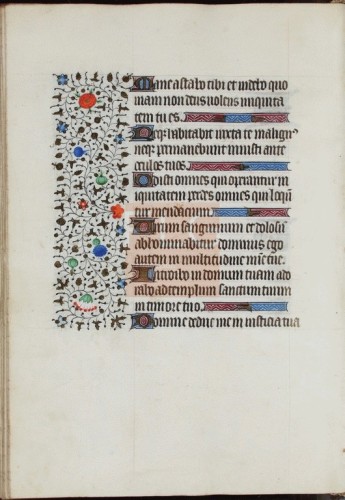 Mane astabo tibi et videbo quo
niam non deus volens iniquita
tem tu es.
Neq3 habitabit iuxta te malign9
neq3 permanebunt iniusti ante
oculos tuos.
Odisti omnes qui operantur in
iquitatem perdes omnes qui loqun
tur mendacium.
Virum sanguinum et dolosum
abhominabitur dominus ego
autem in multitudine mie tue.
Introibo in domum tuam ado
rabo ad templum sanctum tuum
in timore tuo.
Domine deduc me in iusticia tua